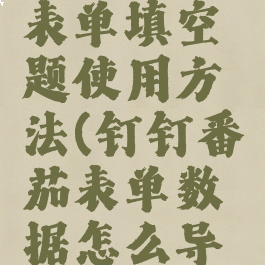 表单填空
题使用方
法(钉钉番
茄表单数
据怎么导